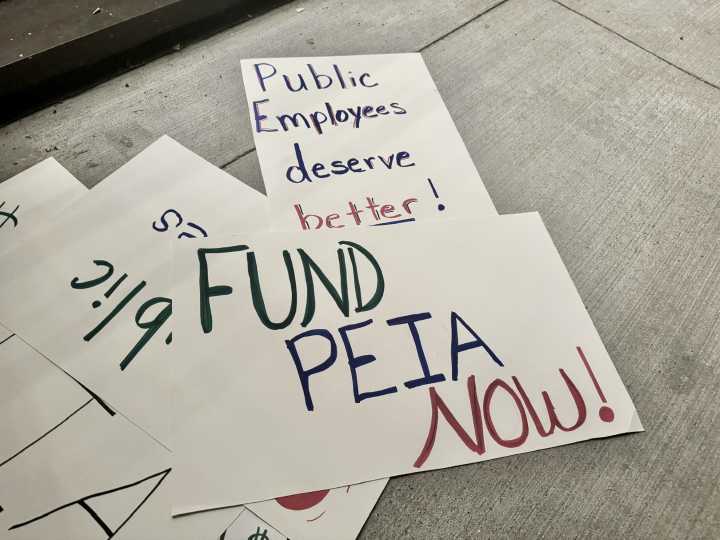 Public
Employees
deserve
better!
FUND
PEIA
NOW!